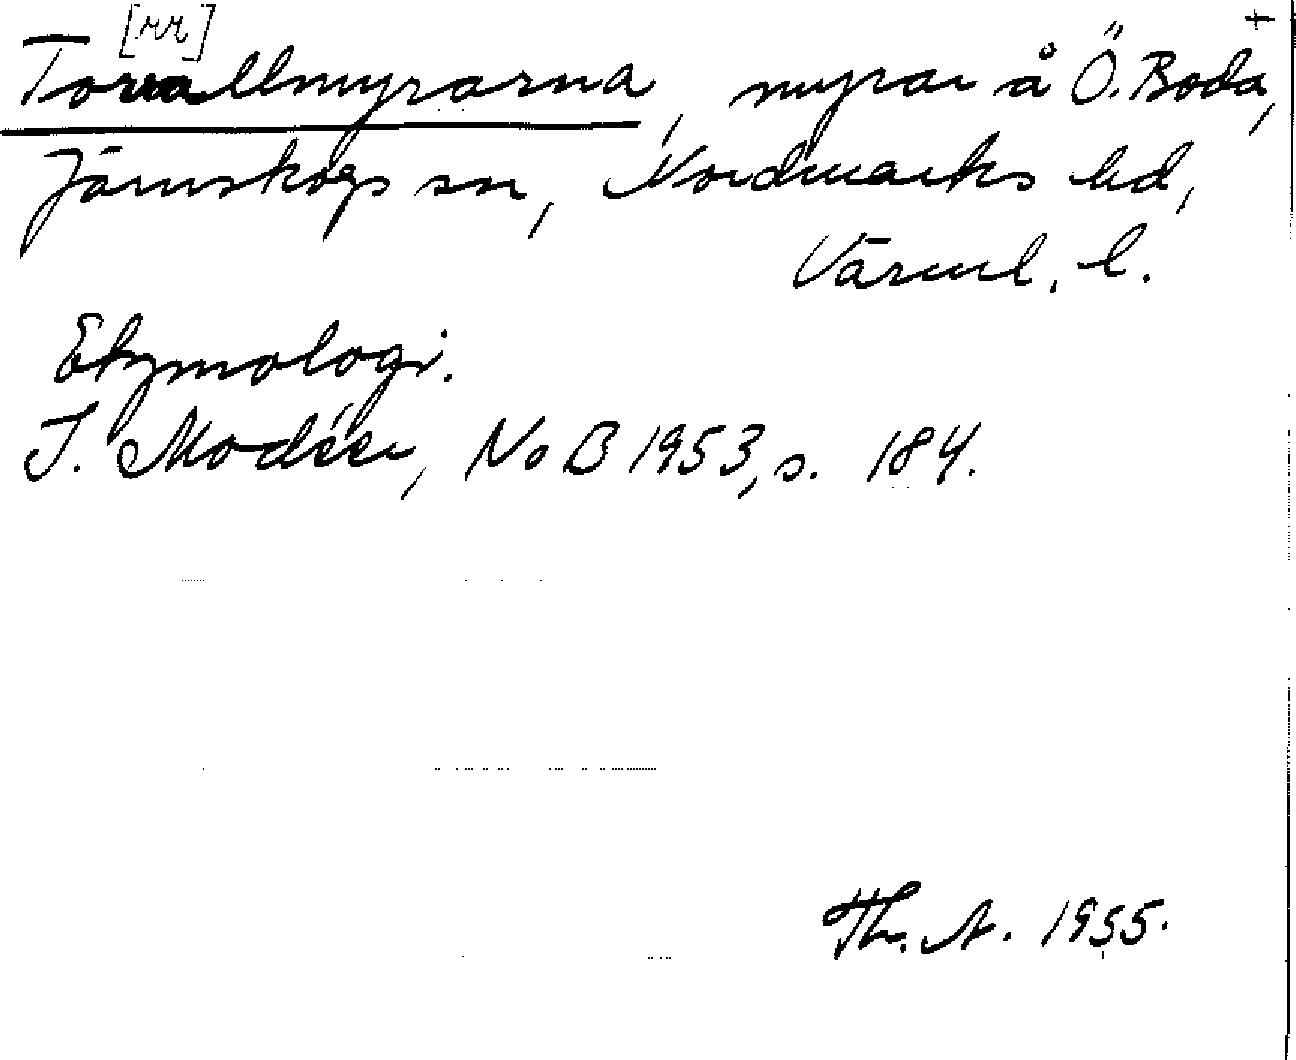 [rr] +
Torrallmyrarna, myrar å Ö. Boda,
Järnskogs sn, Nordmarks hd,
Värml. l.
Etymologi.
I. Modéer, NoB 1953, s. 184.
Th. A. 1955.